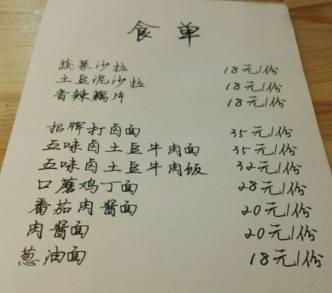 食单
蔬菜沙拉 18元/份
土豆泥沙拉 18元/份
香辣藕片 18元/份
招牌打卤面 35元/份
五味卤土豆牛肉面 35元/份
五味卤土豆牛肉饭 32元/份
口蘑鸡丁面 28元/份
番茄肉酱面 20元/份
肉酱面 20元/份
葱油面 18元/份